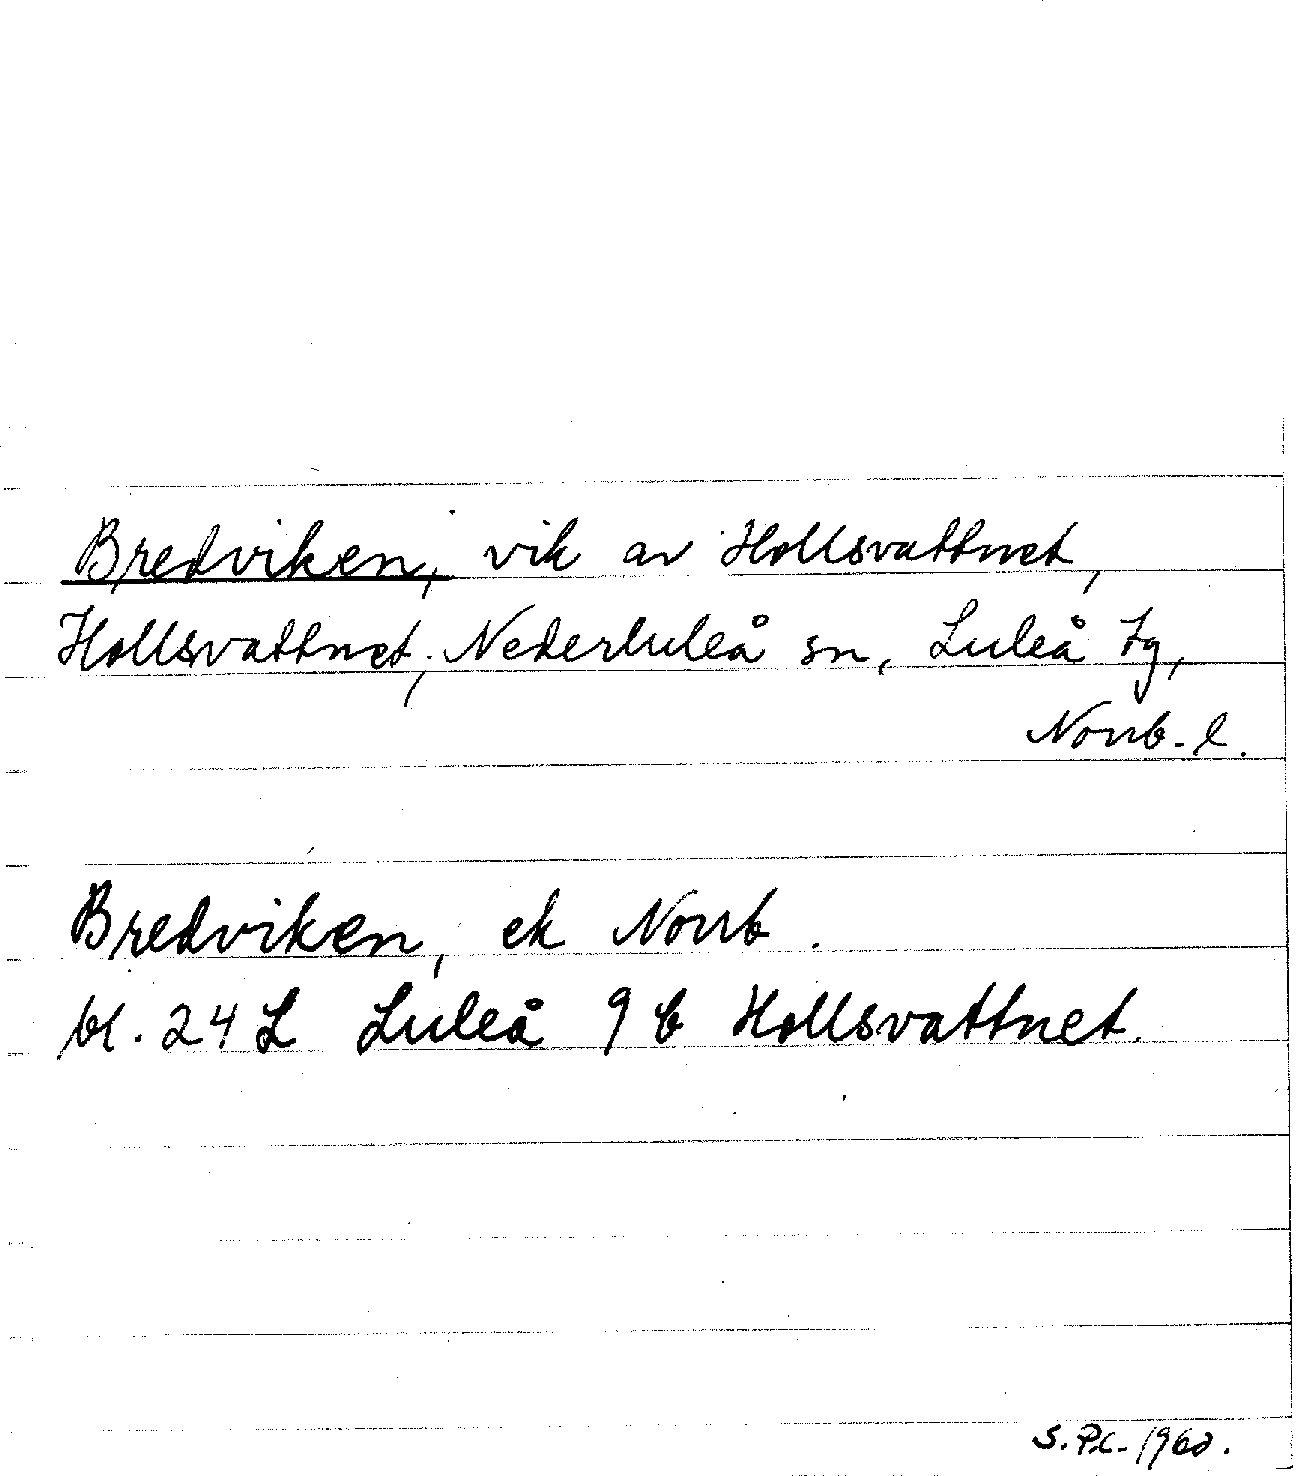 Bredviken, vik av Hollsvattnet,
Hollsvattnet, Nederluleå sn, Luleå tg,
Norrb. l.
Bredviken, ek Norrb.
bl. 24 L Luleå 9 b Hollsvattnet.
S.P.C. 1960.